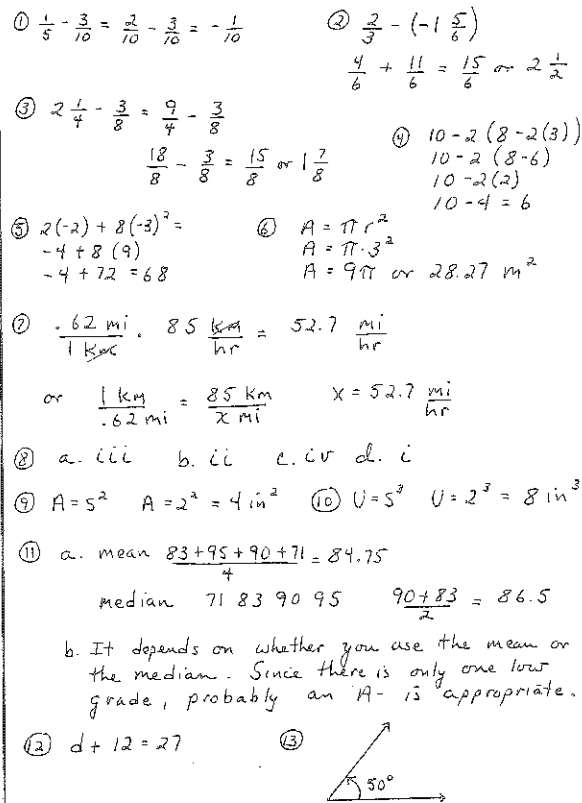 ① 1/5 - 3/10 = 2/10 - 3/10 = - 1/10
② 2/3 - (-1 5/6)
4/6 + 11/6 = 15/6 or 2 1/2
③ 2 1/4 - 3/8 = 9/4 - 3/8
18/8 - 3/8 = 15/8 or 1 7/8
④ 10 - 2 (8 - 2(3))
10 - 2 (8 - 6)
10 - 2(2)
10 - 4 = 6
⑤ 2(-2) + 8(-3)² =
-4 + 8 (9)
-4 + 72 = 68
⑥ A = πr²
A = π·3²
A = 9π or 28.27 m²
⑦ .62 mi/1 km · 85 km/hr = 52.7 mi/hr
or 1 km/.62 mi = 85 km/x mi x = 52.7 mi/hr
⑧ a. iii b. ii c. iv d. i
⑨ A = s² A = 2² = 4 in²
⑩ V = s³ V = 2³ = 8 in³
⑪ a. mean 83+95+90+71/4 = 84.75
median 71 83 90 95 90+83/2 = 86.5
b. It depends on whether you use the mean or
the median. Since there is only one low
grade, probably an A- is appropriate.
⑫ d + 12 = 27
⑬ 50°